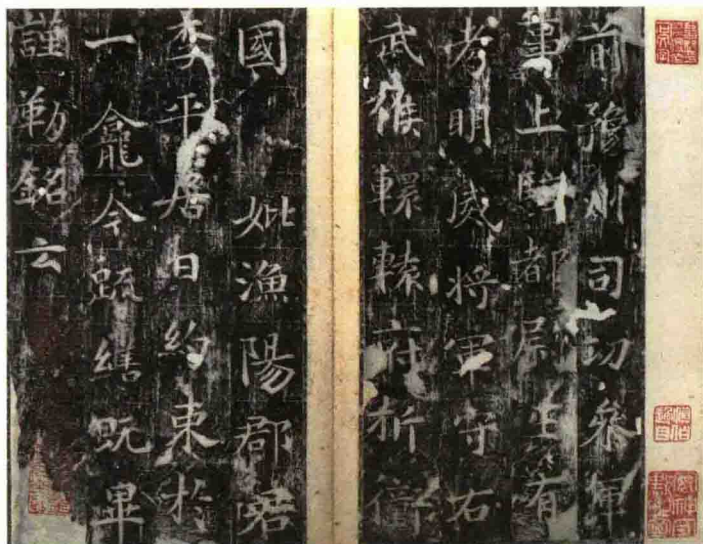 前豫州司功參軍
事上騎都尉王有
考明威將軍守右
武候轘轅府折衝
國 妣漁陽郡君
李平居日約束於
一龕今甄繕既畢
謹勒銘云